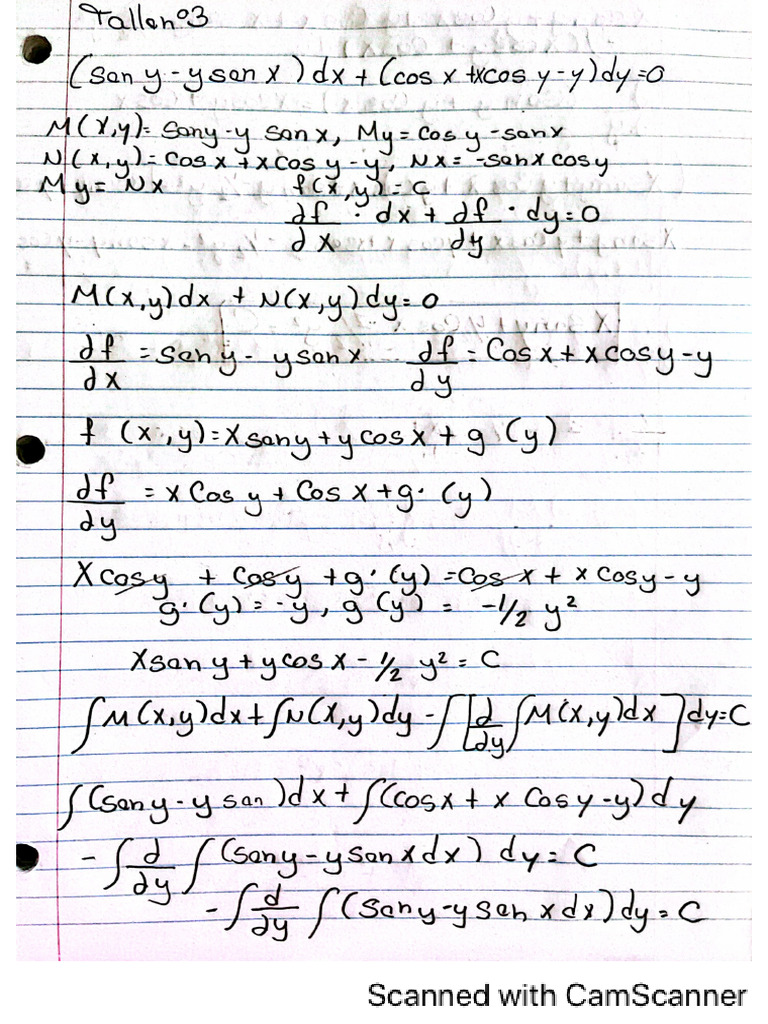 Tallen°3
(sen y - y sen x) dx + (cos x + xcos y - y) dy = 0
M(x,y) = seny - y sen x, My = cos y - senx
N(x,y) = cos x + x cos y - y, Nx = -senx cosy
My = Nx f(x,y) = C
∂f/∂x · dx + ∂f/∂y · dy = 0
M(x,y)dx + N(x,y)dy = 0
∂f/∂x = sen y - y sen x ∂f/∂y = Cos x + x cos y - y
f (x,y) = x sen y + y cos x + g (y)
∂f/∂y = x Cos y + Cos x + g' (y)
X cosy + cosy + g' (y) = cos x + x cosy - y
g' (y) = -y, g (y) = -1/2 y²
x sen y + y cos x - 1/2 y² = C
∫M(x,y)dx + ∫N(x,y)dy - ∫[∂/∂y ∫M(x,y)dx] dy = C
∫(sen y - y sen )dx + ∫(cosx + x Cosy - y) dy
- ∫ ∂/∂y ∫ (seny - y sen x dx) dy = C
- ∫ ∂/∂y ∫ (sen y - y sen x dx) dy = C
Scanned with CamScanner